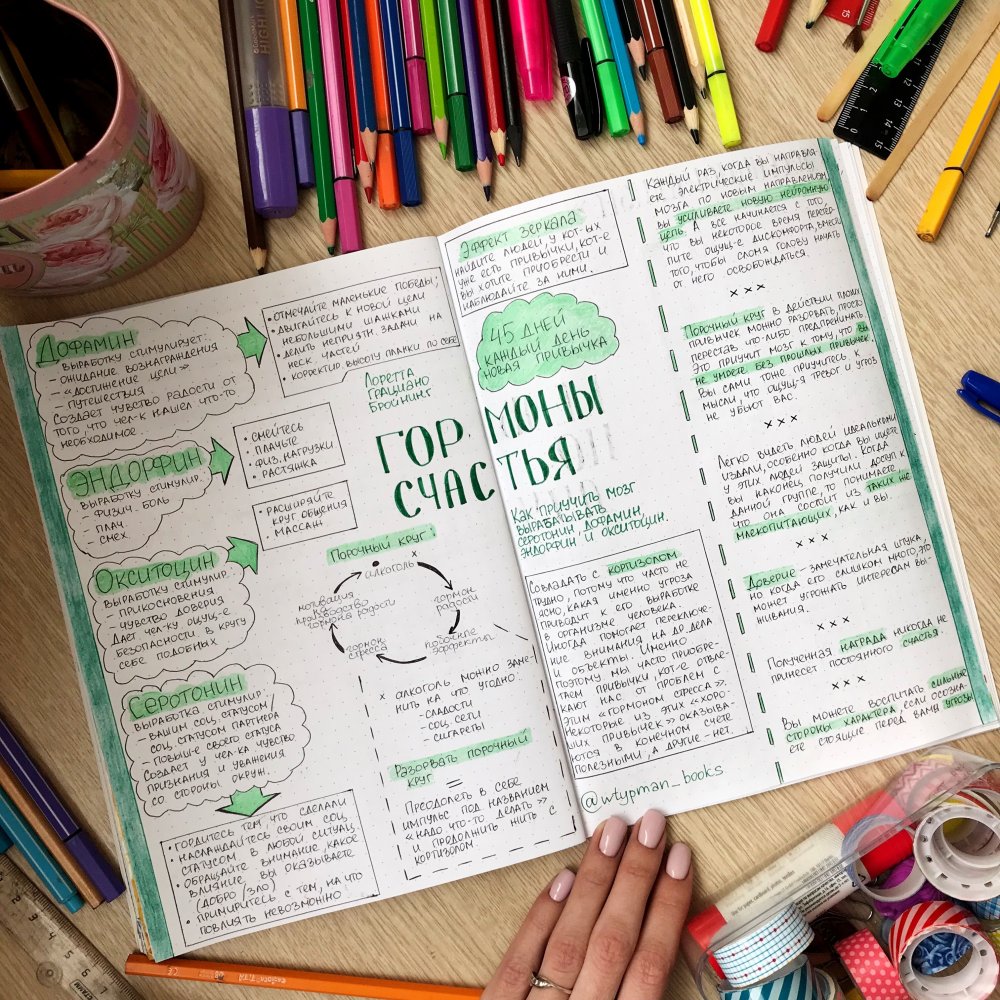 ДОФАМИН
ВЫРАБОТКУ СТИМУЛИРУЕТ:
- ОЖИДАНИЕ ВОЗНАГРАЖДЕНИЯ
- «ДОСТИЖЕНИЕ ЦЕЛИ»
- ПУТЕШЕСТВИЯ
СОЗДАЕТ ЧУВСТВО РАДОСТИ ОТ
ТОГО ЧТО ЧЕЛ-К НАШЕЛ ЧТО-ТО
НЕОБХОДИМОЕ
• ОТМЕЧАЙТЕ МАЛЕНЬКИЕ ПОБЕДЫ;
• ДВИГАЙТЕСЬ К НОВОЙ ЦЕЛИ
НЕБОЛЬШИМИ ШАЖКАМИ
• ДЕЛИТЬ НЕПРИЯТН. ЗАДАЧИ НА
НЕСК. ЧАСТЕЙ
• КОРРЕКТИР. ВЫСОТУ ПЛАНКИ ПО СЕБЕ
ЭНДОРФИН
ВЫРАБОТКУ СТИМУЛИР:
- ФИЗИЧ. БОЛЬ
- ПЛАЧ
- СМЕХ.
• СМЕЙТЕСЬ
• ПЛАЧЬТЕ
• ФИЗ. НАГРУЗКИ
• РАСТЯЖКА
ОКСИТОЦИН
ВЫРАБОТКУ СТИМУЛИР:
- ПРИКОСНОВЕНИЯ
- ЧУВСТВО ДОВЕРИЯ
ДАЕТ ЧЕЛ-КУ ОЩУЩ-Е
БЕЗОПАСНОСТИ В КРУГУ
СЕБЕ ПОДОБНЫХ
• РАСШИРЯЙТЕ
КРУГ ОБЩЕНИЯ
• МАССАЖ
СЕРОТОНИН
ВЫРАБОТКА СТИМУЛИР:
- ВАШИМ СОЦ. СТАТУСОМ/
СОЦ. СТАТУСОМ ПАРТНЕРА
- ПОВЫШ-Е СВОЕГО СТАТУСА
СОЗДАЕТ У ЧЕЛ-КА ЧУВСТВО
ПРИЗНАНИЯ И УВАЖЕНИЯ
СО СТОРОНЫ ОКРУЖ.
• ГОРДИТЕСЬ ТЕМ ЧТО СДЕЛАЛИ
• НАСЛАЖДАЙТЕСЬ СВОИМ СОЦ.
СТАТУСОМ В ЛЮБОЙ СИТУАЦ.
• ОБРАЩАЙТЕ ВНИМАНИЕ, КАКОЕ
ВЛИЯНИЕ ВЫ ОКАЗЫВАЕТЕ
(ДОБРО/ЗЛО)
• ПРИМИРИТЕСЬ С ТЕМ, НА ЧТО
ПОВЛИЯТЬ НЕВОЗМОЖНО
ЛОРЕТТА
ГРАЦИАНО
БРОЙНИНГ
ГОРМОНЫ
СЧАСТЬЯ
КАК ПРИУЧИТЬ МОЗГ
ВЫРАБАТЫВАТЬ
СЕРОТОНИН, ДОФАМИН,
ЭНДОРФИН И ОКСИТОЦИН.
ПОРОЧНЫЙ КРУГ:
АЛКОГОЛЬ x
ГОРМОН
РАДОСТИ
x
ПОБОЧНЫЕ
ЭФФЕКТЫ
ГОРМОН
СТРЕССА
МОТИВАЦИЯ
ПРОИЗВОДСТВО
ГОРМОНА РАДОСТИ
x АЛКОГОЛЬ МОЖНО ЗАМЕ-
НИТЬ НА ЧТО УГОДНО:
- СЛАДОСТИ
- СОЦ. СЕТИ
- СИГАРЕТЫ
РАЗОРВАТЬ ПОРОЧНЫЙ
КРУГ
=
ПРЕОДОЛЕТЬ В СЕБЕ
ИМПУЛЬС ПОД НАЗВАНИЕМ
«НАДО ЧТО-ТО ДЕЛАТЬ»
И ПРОДОЛЖИТЬ ЖИТЬ С
КОРТИЗОЛОМ
ЭФФЕКТ ЗЕРКАЛА
НАЙДИТЕ ЛЮДЕЙ У КОТ-ЫХ
УЖЕ ЕСТЬ ПРИВЫЧКИ, КОТ-Е
ВЫ ХОТИТЕ ПРИОБРЕСТИ И
НАБЛЮДАЙТЕ ЗА НИМИ.
45 ДНЕЙ
КАЖДЫЙ ДЕНЬ
НОВАЯ ПРИВЫЧКА
СОВЛАДАТЬ С КОРТИЗОЛОМ
ТРУДНО, ПОТОМУ ЧТО ЧАСТО НЕ
ЯСНО, КАКАЯ ИМЕННО УГРОЗА
ПРИВОДИТ К ЕГО ВЫРАБОТКЕ
В ОРГАНИЗМЕ ЧЕЛОВЕКА.
ИНОГДА ПОМОГАЕТ ПЕРЕКЛЮЧЕ-
НИЕ ВНИМАНИЯ НА ДР. ДЕЛА
И ОБЪЕКТЫ. ИМЕННО
ПОЭТОМУ МЫ ЧАСТО ПРИОБРЕ-
ТАЕМ ПРИВЫЧКИ, КОТ-Е ОТВЛЕ-
КАЮТ НАС ОТ ПРОБЛЕМ С
ЭТИМ «ГОРМОНОМ СТРЕССА».
НЕКОТОРЫЕ ИЗ ЭТИХ «ХОРО-
ШИХ ПРИВЫЧЕК» ОКАЗЫВА-
ЮТСЯ В КОНЕЧНОМ СЧЕТЕ
ПОЛЕЗНЫМИ, А ДРУГИЕ - НЕТ.
@wtypman_books
КАЖДЫЙ РАЗ, КОГДА ВЫ НАПРАВЛЯ-
ЕТЕ ЭЛЕКТРИЧЕСКИЕ ИМПУЛЬСЫ
МОЗГА ПО НОВЫМ НАПРАВЛЕНИЯМ,
ВЫ УСИЛИВАЕТЕ НОВУЮ НЕЙРОННУЮ
ЦЕПЬ. А ВСЕ НАЧИНАЕТСЯ С ТОГО,
ЧТО ВЫ НЕКОТОРОЕ ВРЕМЯ ПЕРЕТЕР-
ПИТЕ ОЩУЩ-Е ДИСКОМФОРТА, ВМЕСТО
ТОГО, ЧТОБЫ СЛОМЯ ГОЛОВУ НАЧАТЬ
ОТ НЕГО ОСВОБОЖДАТЬСЯ.
x x x
ПОРОЧНЫЙ КРУГ В ДЕЙСТВИИ ПЛОХИХ
ПРИВЫЧЕК МОЖНО РАЗОРВАТЬ, ПРОСТО
ПЕРЕСТАВ ЧТО-ЛИБО ПРЕДПРИНИМАТЬ.
ЭТО ПРИУЧИТ МОЗГ К ТОМУ, ЧТО ВЫ
НЕ УМРЕТЕ БЕЗ ПРОШЛЫХ ПРИВЫЧЕК
ВЫ САМИ ТОЖЕ ПРИУЧИТЕСЬ К
МЫСЛИ, ЧТО ОЩУЩ-Я ТРЕВОГ И УГРОЗ
НЕ УБЬЮТ ВАС.
x x x
ЛЕГКО ВИДЕТЬ ЛЮДЕЙ ИДЕАЛЬНЫМИ
ИЗДАЛИ, ОСОБЕННО КОГДА ВЫ ИЩЕТЕ
У ЭТИХ ЛЮДЕЙ ЗАЩИТЫ. КОГДА
ВЫ НАКОНЕЦ ПОЛУЧИЛИ ДОСТУП К
ДАННОЙ ГРУППЕ, ТО ПОНИМАЕТЕ,
ЧТО ОНА СОСТОИТ ИЗ ТАКИХ ЖЕ
МЛЕКОПИТАЮЩИХ, КАК И ВЫ.
x x x
ДОВЕРИЕ - ЗАМЕЧАТЕЛЬНАЯ ШТУКА,
НО КОГДА ЕГО СЛИШКОМ МНОГО, ЭТО
МОЖЕТ УГРОЖАТЬ ИНТЕРЕСАМ ВЫ-
ЖИВАНИЯ.
x x x
ПОЛУЧЕННАЯ НАГРАДА НИКОГДА НЕ
ПРИНЕСЕТ ПОСТОЯННОГО СЧАСТЬЯ.
x x x
ВЫ МОЖЕТЕ ВОСПИТАТЬ СИЛЬНЫЕ
СТОРОНЫ ХАРАКТЕРА, ЕСЛИ ОСОЗНА-
ЕТЕ СТОЯЩИЕ ПЕРЕД ВАМИ УГРОЗЫ